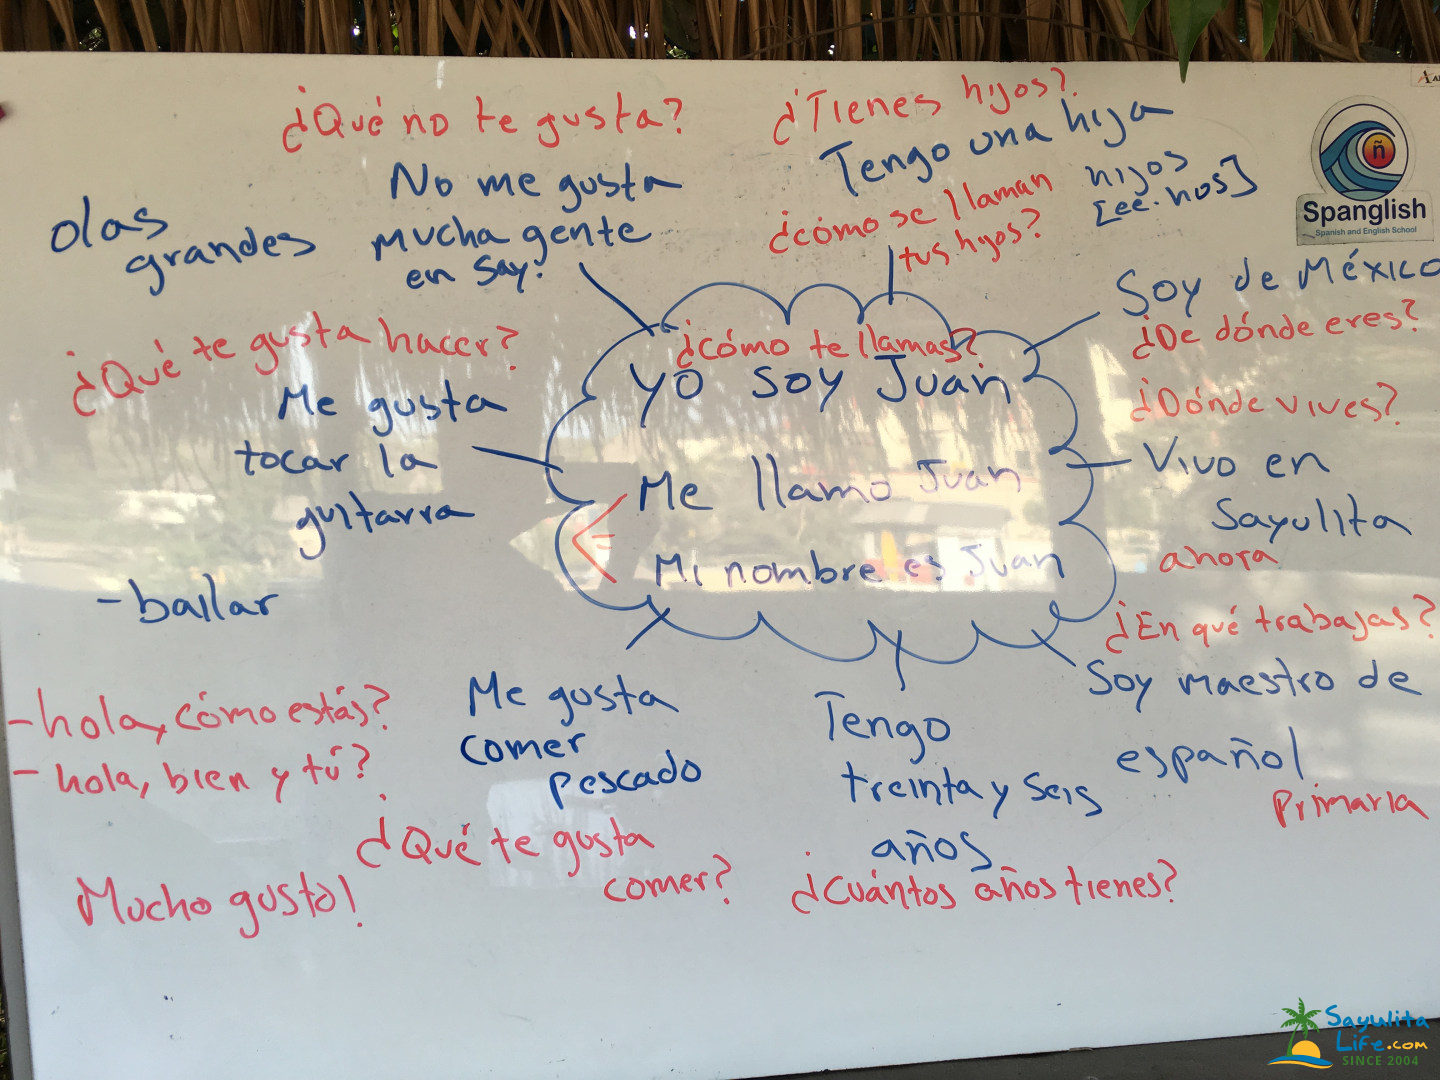 ¿Qué no te gusta?
No me gusta
mucha gente
en Say.
olas
grandes
¿Tienes hijos?
Tengo una hija
hijos
[ee.hos]
¿cómo se llaman
tus hijos?
Spanglish
Spanish and English School
Soy de México
¿De dónde eres?
¿Qué te gusta hacer?
Me gusta
tocar la
guitarra
-bailar
¿cómo te llamas?
Yo soy Juan
Me llamo Juan
Mi nombre es Juan
¿Dónde vives?
Vivo en
Sayulita
ahora
¿En qué trabajas?
Soy maestro de
español
primaria
-hola, cómo estás?
-hola, bien y tú?
Mucho gusto!
Me gusta
comer
pescado
¿Qué te gusta
comer?
Tengo
treinta y seis
años
¿Cuántos años tienes?
Sayulita
Life.com
SINCE 2004